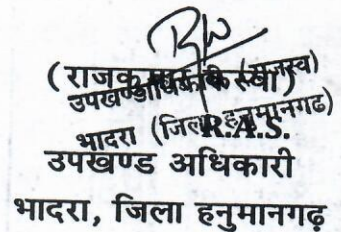 (राजकुमार कस्वा)
उपखण्ड अधिकारी (राजस्व)
भादरा (जिला हनुमानगढ)
R.A.S.
उपखण्ड अधिकारी
भादरा, जिला हनुमानगढ़